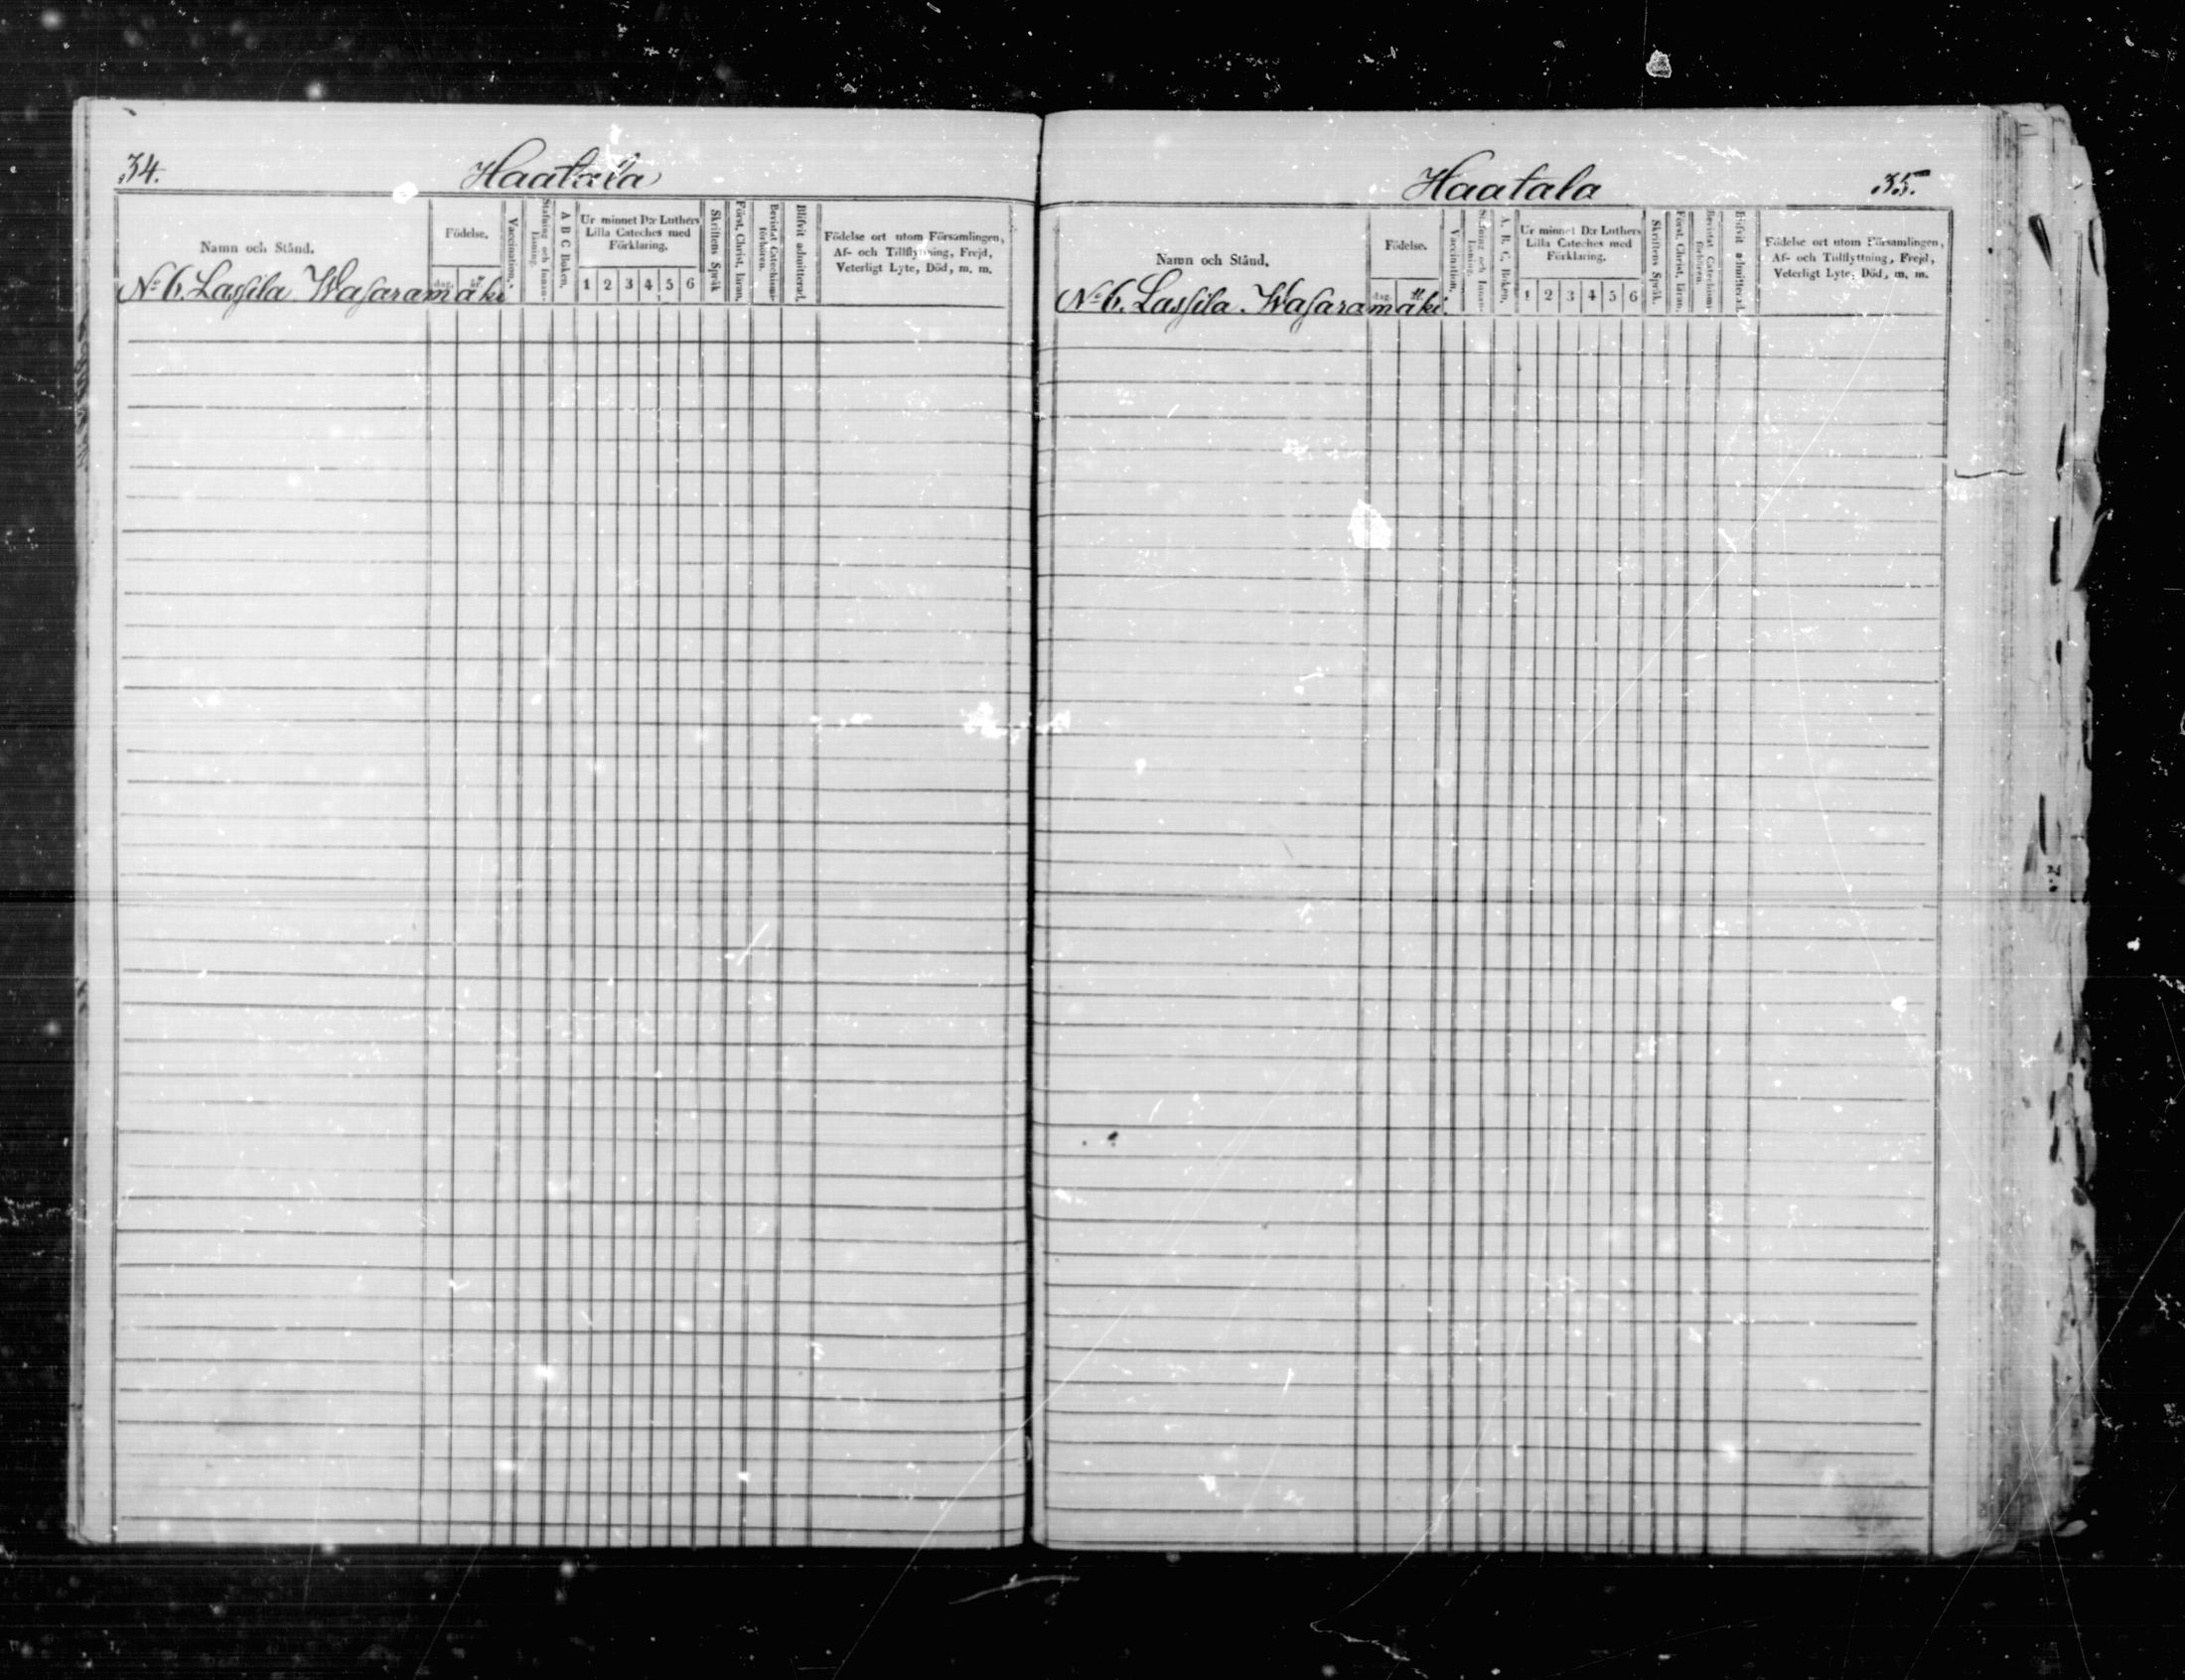 34.
Haatala
Namn och Stånd.
Födelse.
dag.
år.
Vaccination.
Stafning och Innan-
läsning.
A B C Boken.
Ur minnet D:r Luthers
Lilla Cateches med
Förklaring.
1 2 3 4 5 6
Skriftens Språk
Först. Christ. läran.
Bevistat Catechismi-
förhören.
Blifvit admitterad.
Födelse ort utom Församlingen,
Af- och Tillflyttning, Frejd,
Veterligt Lyte, Död, m. m.
No 6. Lassila Wasaramäki
Haatala
35.
Namn och Stånd.
Födelse.
dag.
år.
Vaccination.
Stafning och Innan-
läsning.
A. B. C. Boken.
Ur minnet D:r Luthers
Lilla Cateches med
Förklaring.
1 2 3 4 5 6
Skriftens Språk.
Först. Christ. läran.
Bevistat Catechismi-
förhören.
Blifvit admitterad.
Födelse ort utom Församlingen,
Af- och Tillflyttning, Frejd,
Veterligt Lyte, Död, m. m.
No 6. Lassila. Wasaramäki.